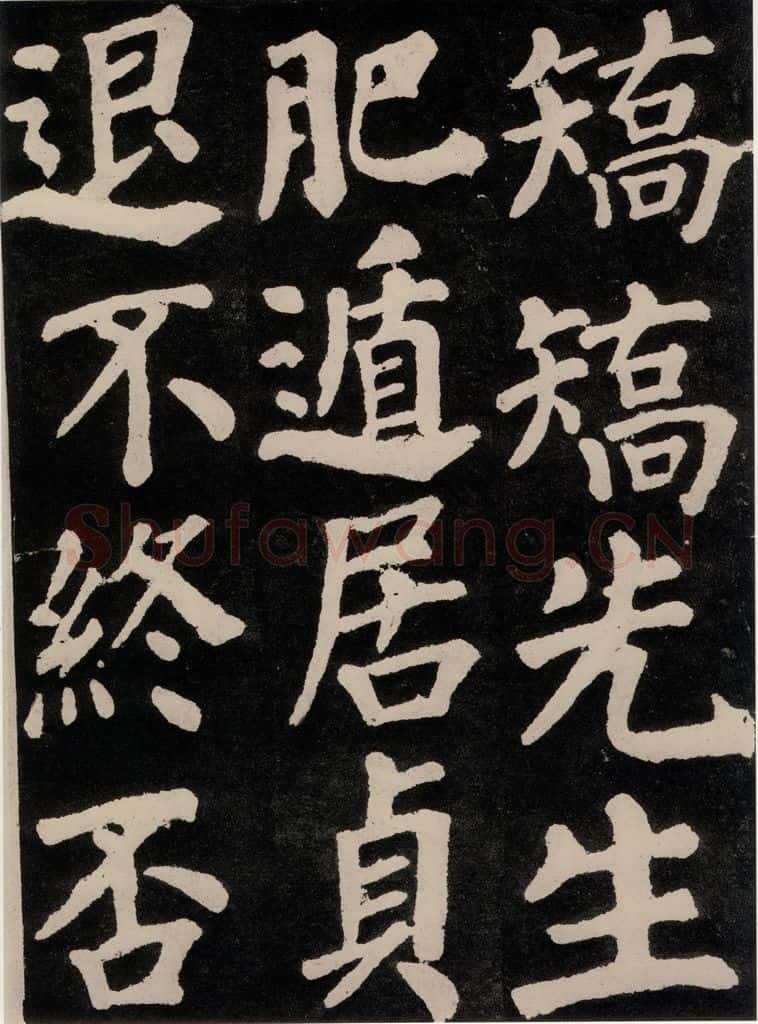 矯矯先生
肥遁居貞
退不終否
Shufawang.CN